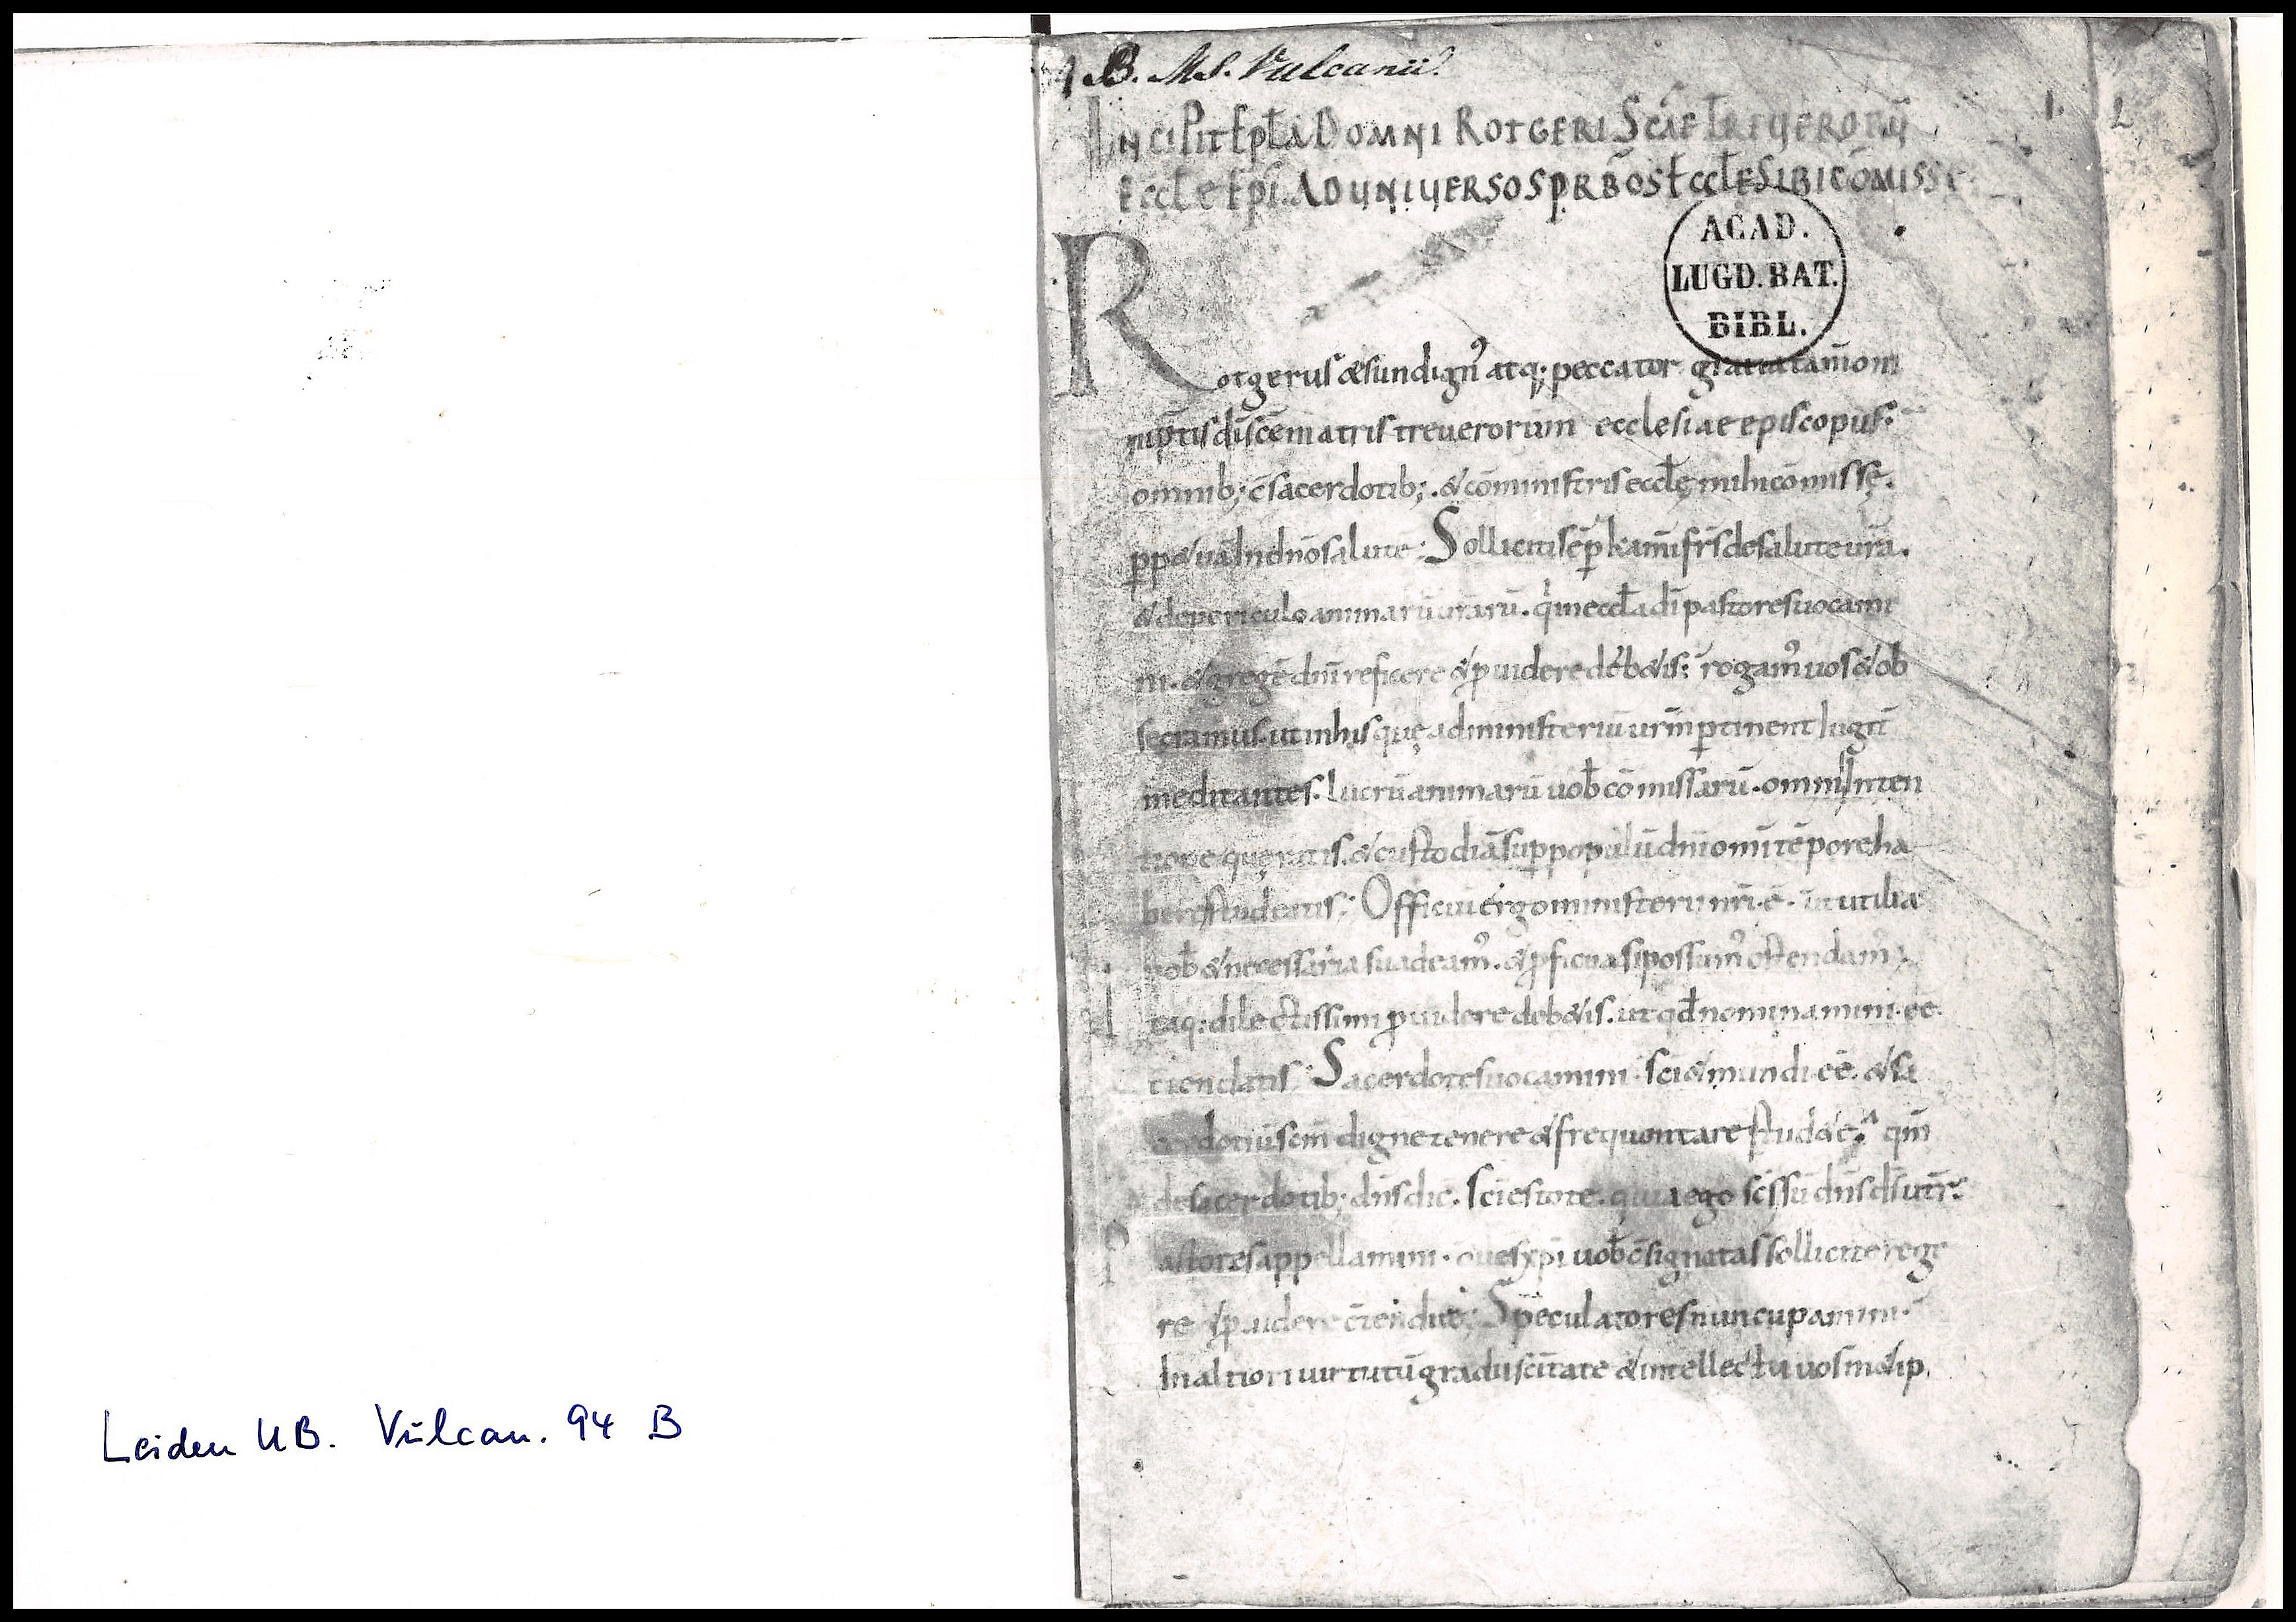 B. MS. Vulcanii.
INCIPIT EPLA DOMNI ROTGERI SCAE TREUERORŪ
ECCLE EPI. AD UNIUERSOS PRBOS ECCLE SIBI COMISSE
ACAD.
LUGD. BAT.
BIBL.
Rotgerus & si indign' atq; peccator gratia tam̄ om
nipt̄is dī sc̄e matris treuerorum ecclesiae episcopus.
omnib; c̄sacerdotib; . & cōministris eccl̄ę mihi cōmissę.
pp& uā In dn̄o salutē. Solliciti sēp kam̄i fr̄s de salute ur̄a.
& de periculo animarū ur̄arū. qui in eccl̄a dī pastores uocami
ni. & gregē dn̄i reficere & puidere deb&is. rogam' uos & ob
secramus. ut in his quę ad ministeriū ur̄m ptinent Iugit̄
meditantes. lucrū animarū uob̄ cōmissarū. omni Inten
tione quęratis. & custodiā sup populū dn̄i omī tēpore ha
bere studeatis. Officiū ergo ministerii nr̄i. ē. ut utilia
uob̄ & necessaria suadeam'. & pficua si possum' ostendam'.
Itaq; dilectissimi puidere deb&is. ut qd̄ nominamini. eē.
c̄tendatis. Sacerdotes uocamini. sc̄i & mundi. eē. & sa
cerdotiū sc̄m digne tenere & frequentare stud&e. qm̄
de sacerdotib; dn̄s dic̄. Sc̄i estote. quia ego sc̄s sū dn̄s ds̄ ur̄.
Pastores appellamini. oues xp̄i uob̄ c̄signatas sollicite rege
re & puidere c̄tendite. Speculatores nuncupamini.
In altiori uirtutū gradu sc̄itate & intellectu uosm&ip
Leiden UB. Vulcan. 94 B